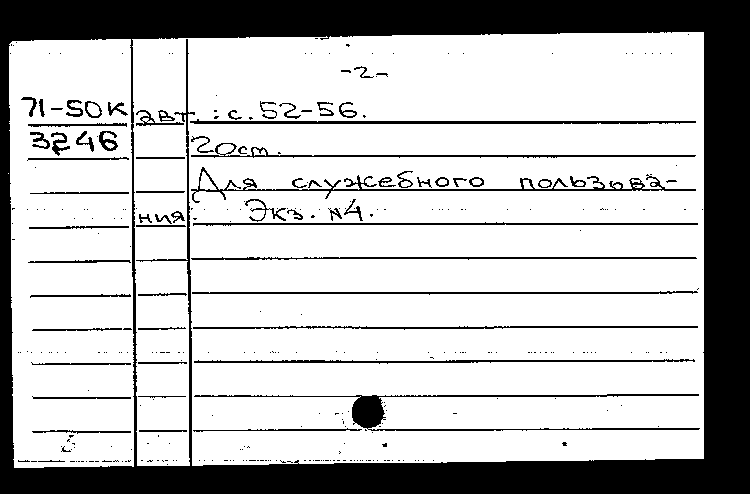 -2-
71-50К авт. : с. 52-56.
3246 20см.
Для служебного пользова-
ния. Экз. №4.